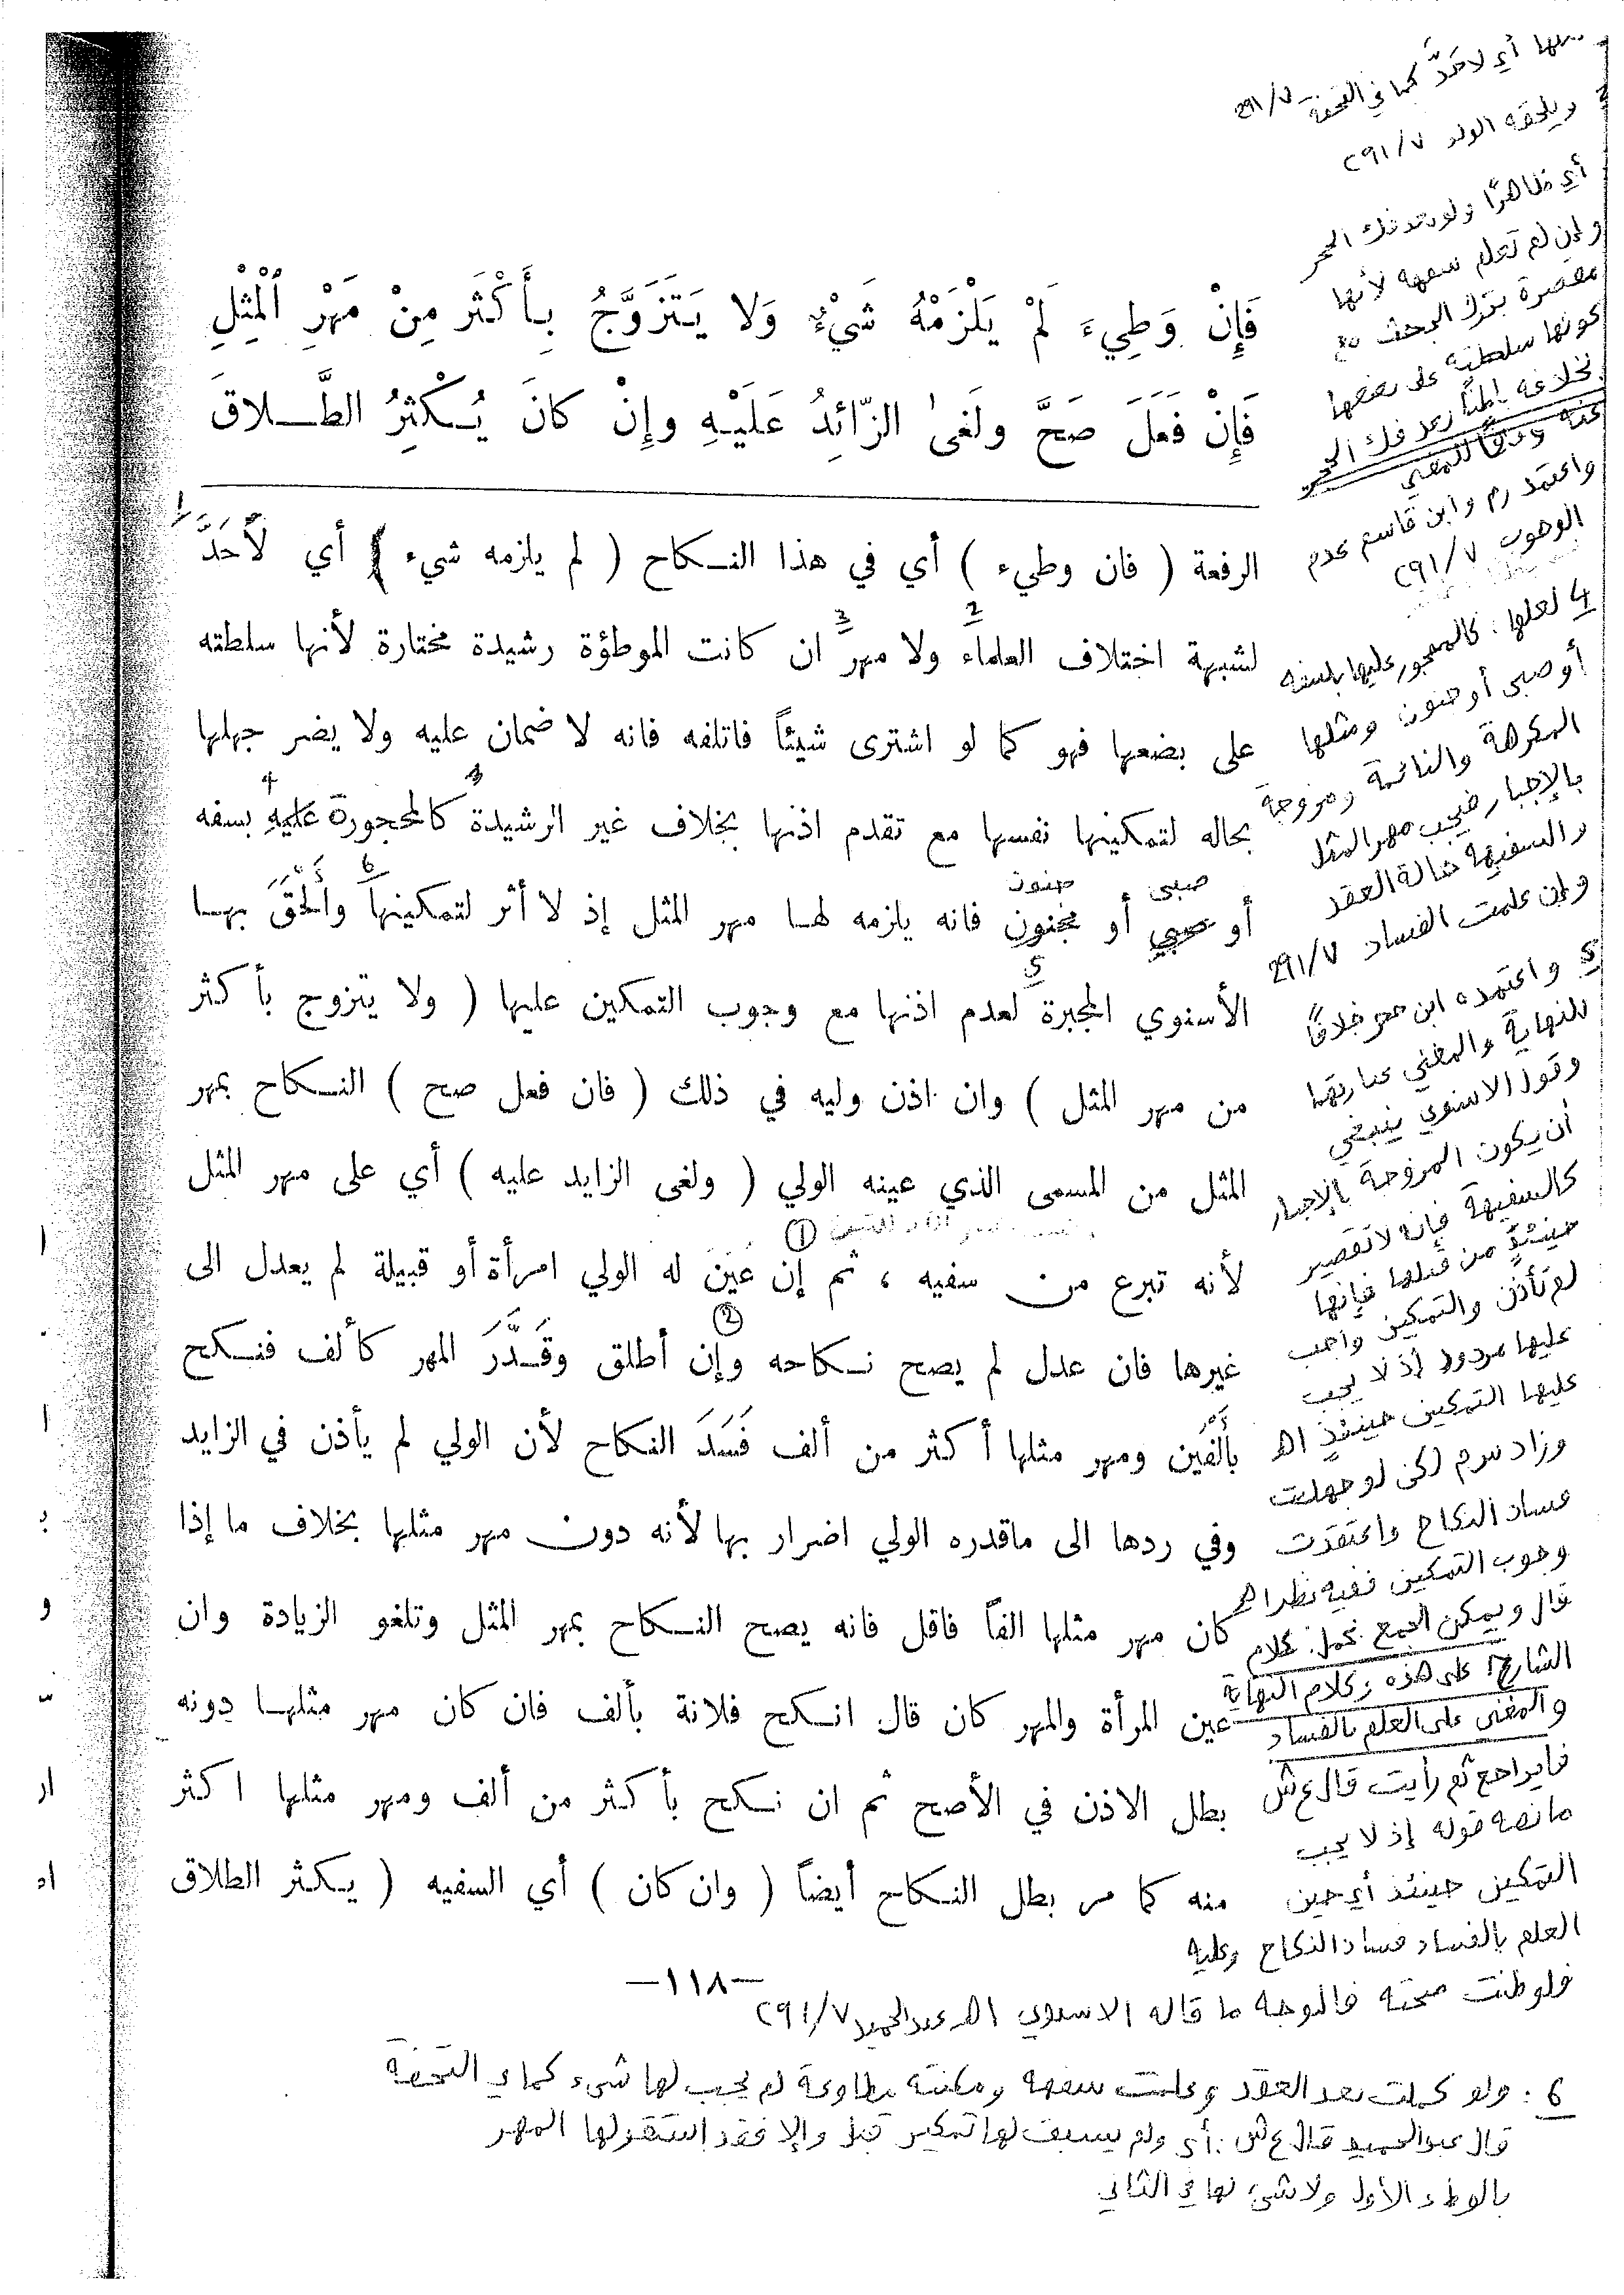 فَإِنْ وَطِيءَ لَمْ يَلْزَمْهُ شَيْءٌ وَلا يَتَزَوَّجُ بِأَكْثَر مِنْ مَهْرِ ٱلْمِثْلِ
فَإِنْ فَعَلَ صَحَّ ولَغىٰ الزّائِدُ عَلَيْهِ وإِنْ كانَ يُكْثِرُ الطَّلاقَ
الرفعة ( فان وطيء ) أي في هذا النكاح ( لم يلزمه شيء ) أي لاَحَدَّ
لشبهة اختلاف العلماء ولا مهر ان كانت الموطؤة رشيدة مختارة لأنها سلطته
على بضعها فهو كما لو اشترى شيئاً فاتلفه فانه لا ضمان عليه ولا يضر جهلها
بحاله لتمكينها نفسها مع تقدم اذنها بخلاف غير الرشيدة كالمحجورة عليه بسفه
أو صبي أو مجنون فانه يلزمه لها مهر المثل إذ لا أثر لتمكينها وأَلْحَقَ بها
الأسنوي المجبرة لعدم اذنها مع وجوب التمكين عليها ( ولا يتزوج بأكثر
من مهر المثل ) وان اذن وليه في ذلك ( فان فعل صح ) النكاح بمهر
المثل من المسمى الذي عينه الولي ( ولغى الزايد عليه ) أي على مهر المثل
لأنه تبرع من سفيه ، ثم إن عَيَنَ له الولي امرأة أو قبيلة لم يعدل الى
غيرها فان عدل لم يصح نكاحه وإن أطلق وقَدَّرَ المهر كألف فنكح
بألفَين ومهر مثلها أكثر من ألف فَسَدَ النكاح لأن الولي لم يأذن في الزايد
وفي ردها الى ماقدره الولي اضرار بها لأنه دون مهر مثلها بخلاف ما إذا
كان مهر مثلها الفاً فاقل فانه يصح النكاح بمهر المثل وتلغو الزيادة وان
عين المرأة والمهر كان قال انكح فلانة بألف فان كان مهر مثلها دونه
بطل الاذن في الأصح ثم ان نكح بأكثر من ألف ومهر مثلها اكثر
منه كما مر بطل النكاح أيضاً ( وان كان ) أي السفيه ( يكثر الطلاق
—١١٨—
أي لاحَدَّ كما في التحفة ٢٩١/٧
ويلحقه الولد ٢٩١/٧
أي ظاهرًا ولو بعد فك الحجر
وإن لم تعلم سفهه لأنها
مقصرة بترك البحث مع
كونها سلطته على بضعها
بخلافه باطنًا بعد فك الحجر
عنه وفاقًا للمغني
واعتمد م ر وابن قاسم عدم
الوجوب ٢٩١/٧
4 لعلها : كالمحجور عليها بسفه
أو صبى أو جنون ومثلها
المكرهة والنائمة ومزوجة
بالإجبار فيجب مهر المثل
والسفيهة حالة العقد
وإن علمت الفساد ٢٩١/٧
5 واعتمده ابن حجر خلافًا
للنهاية والمغني عبارتهما
وقول الاسنوي ينبغي
أن يكون المزوجة بالإجبار
كالسفيهة فإنه لا تقصير
حينئذٍ من قبلها فإنها
لم تأذن والتمكين واجب
عليها مردود إذ لا يجب
عليها التمكين حينئذٍ اهـ
وزاد سم لكن لو جهلت
فساد النكاح واعتقدت
وجوب التمكين ففيه نظر اهـ
قال ويمكن الجمع بحمل كلام
الشارح على هذه وكلام النهاية
والمغني على العلم بالفساد
فليراجع ثم رأيت قال ع ش
ما نصه قوله إذ لا يجب
التمكين حينئذ أي حين
العلم بالفساد فساد النكاح وعليه
فلو ظنت صحته فالوجه ما قاله الاسنوي اهـ عبدالحميد ٢٩١/٧
6 : ولو كملت بعد العقد وعلمت سفهه ومكنته مطاوعة لم يجب لها شيء كما في التحفة
قال عبدالحميد قال ع ش : أي ولم يسبق لها تمكين قبل وإلا فقد استقر لها المهر
بالوطء الأول ولا شيء لها في الثاني